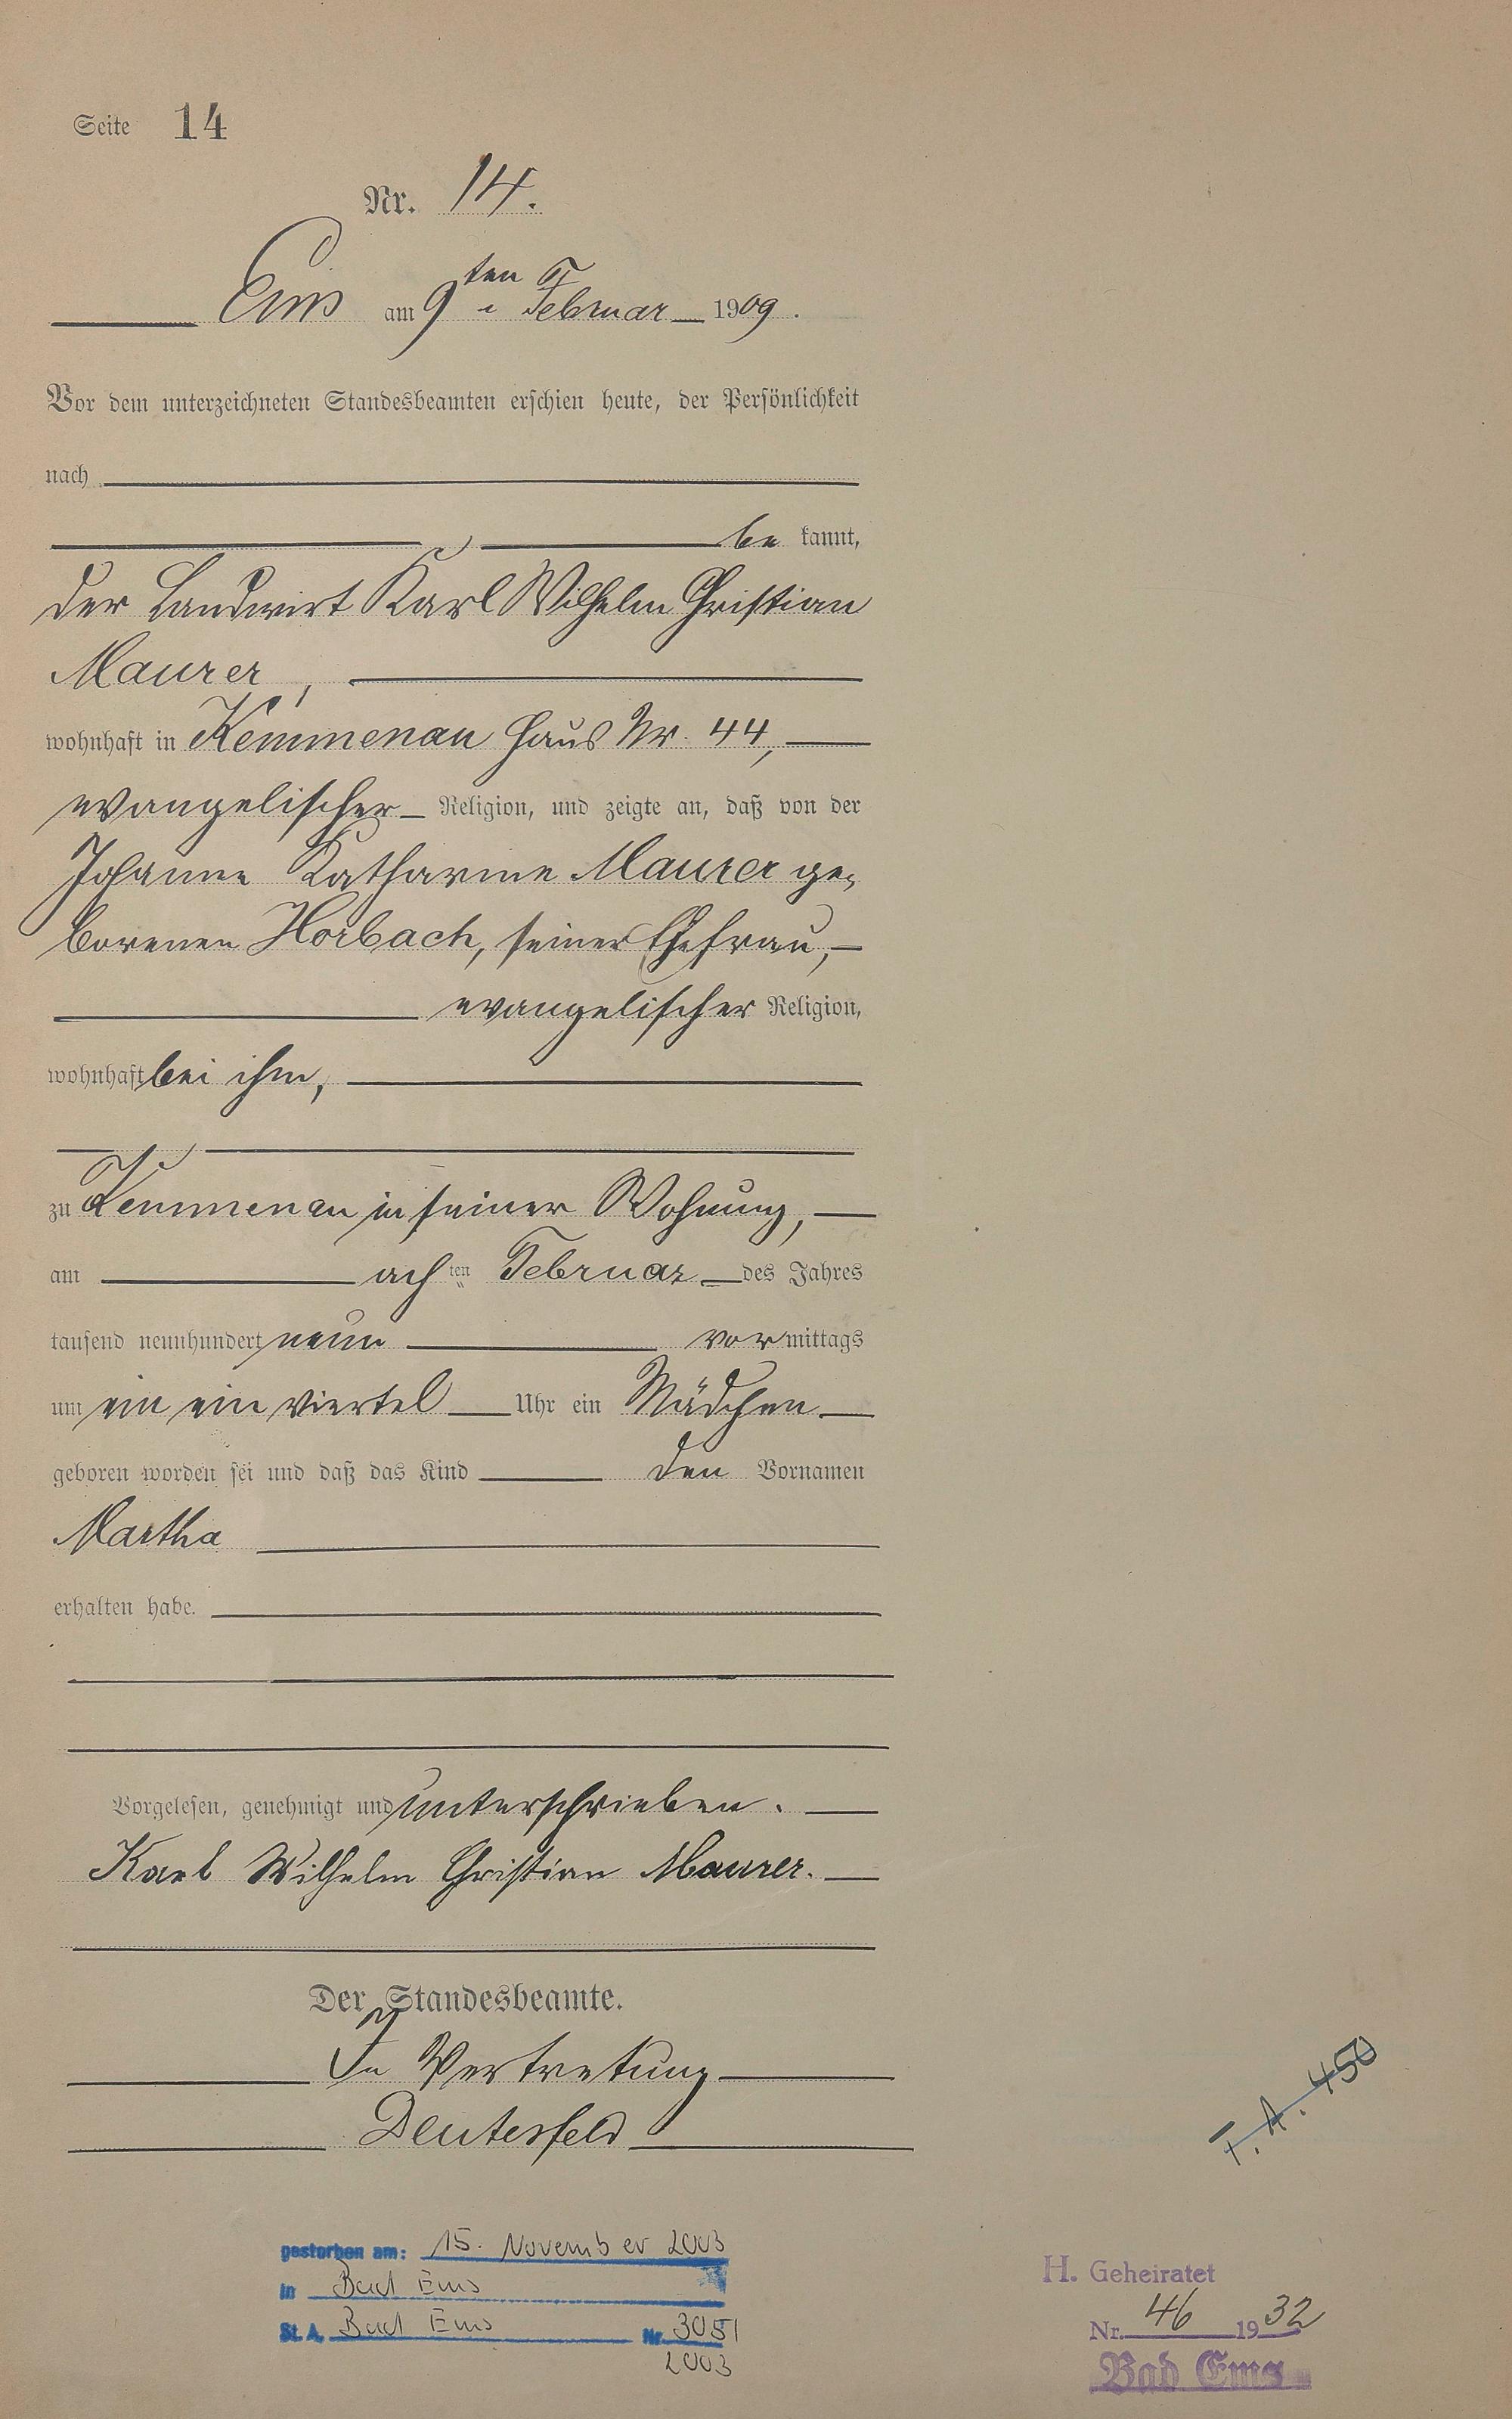 Seite 14
Nr. 14.
Ems am 9ten Februar 1909.
Vor dem unterzeichneten Standesbeamten erschien heute, der Persönlichkeit
nach
be kannt,
der Landwirt Karl Wilhelm Christian
Maurer,
wohnhaft in Kemmenau Haus Nr. 44,
evangelischer Religion, und zeigte an, daß von der
Johanne Katharine Maurer ge-
borenen Horbach, seiner Ehefrau,
evangelischer Religion,
wohnhaft bei ihm,
zu Kemmenau in seiner Wohnung,
am achten Februar des Jahres
tausend neunhundert neun vormittags
um ein ein viertel Uhr ein Mädchen
geboren worden sei und daß das Kind den Vornamen
Martha
erhalten habe.
Vorgelesen, genehmigt und unterschrieben.
Karl Wilhelm Christian Maurer.
Der Standesbeamte.
In Vertretung
Deutesfeld
F. A. 450
gestorben am: 15. November 2003
in Bad Ems
St. A. Bad Ems Nr. 3051
2003
H. Geheiratet
Nr. 46 1932
Bad Ems